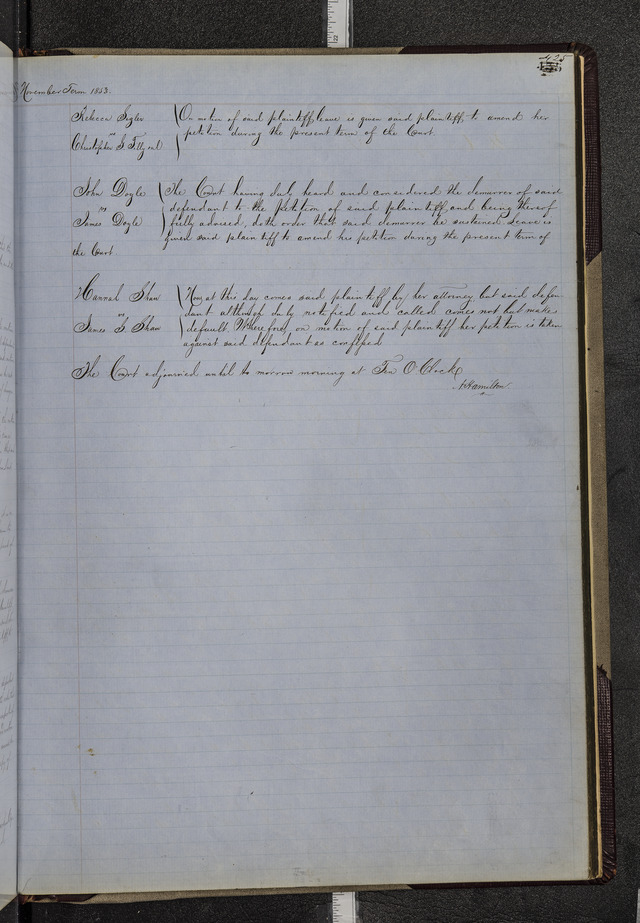 425
November Term 1853.
Rebecca Sigler On motion of said plaintiff, leave is given said plaintiff, to amend her
vs petition during the present term of the Court.
Christopher S
John Doyle The Court having duly heard and considered the demurrer of said
vs defendant to the petition of said plaintiff, and being thereof
James Doyle fully advised, doth order that said demurrer be sustained. Leave is
given said plaintiff to amend his petition during the present term of
the Court.
Hannah Shaw Now at this day comes said plaintiff by her attorney but said defen
vs dant altho duly notified and called comes not but makes
James S Shaw default. Wherefore, on motion of said plaintiff her petition is taken
against said defendant as confessed
The Court adjourned until to morrow morning at Ten O.Clock
A Hamilton.